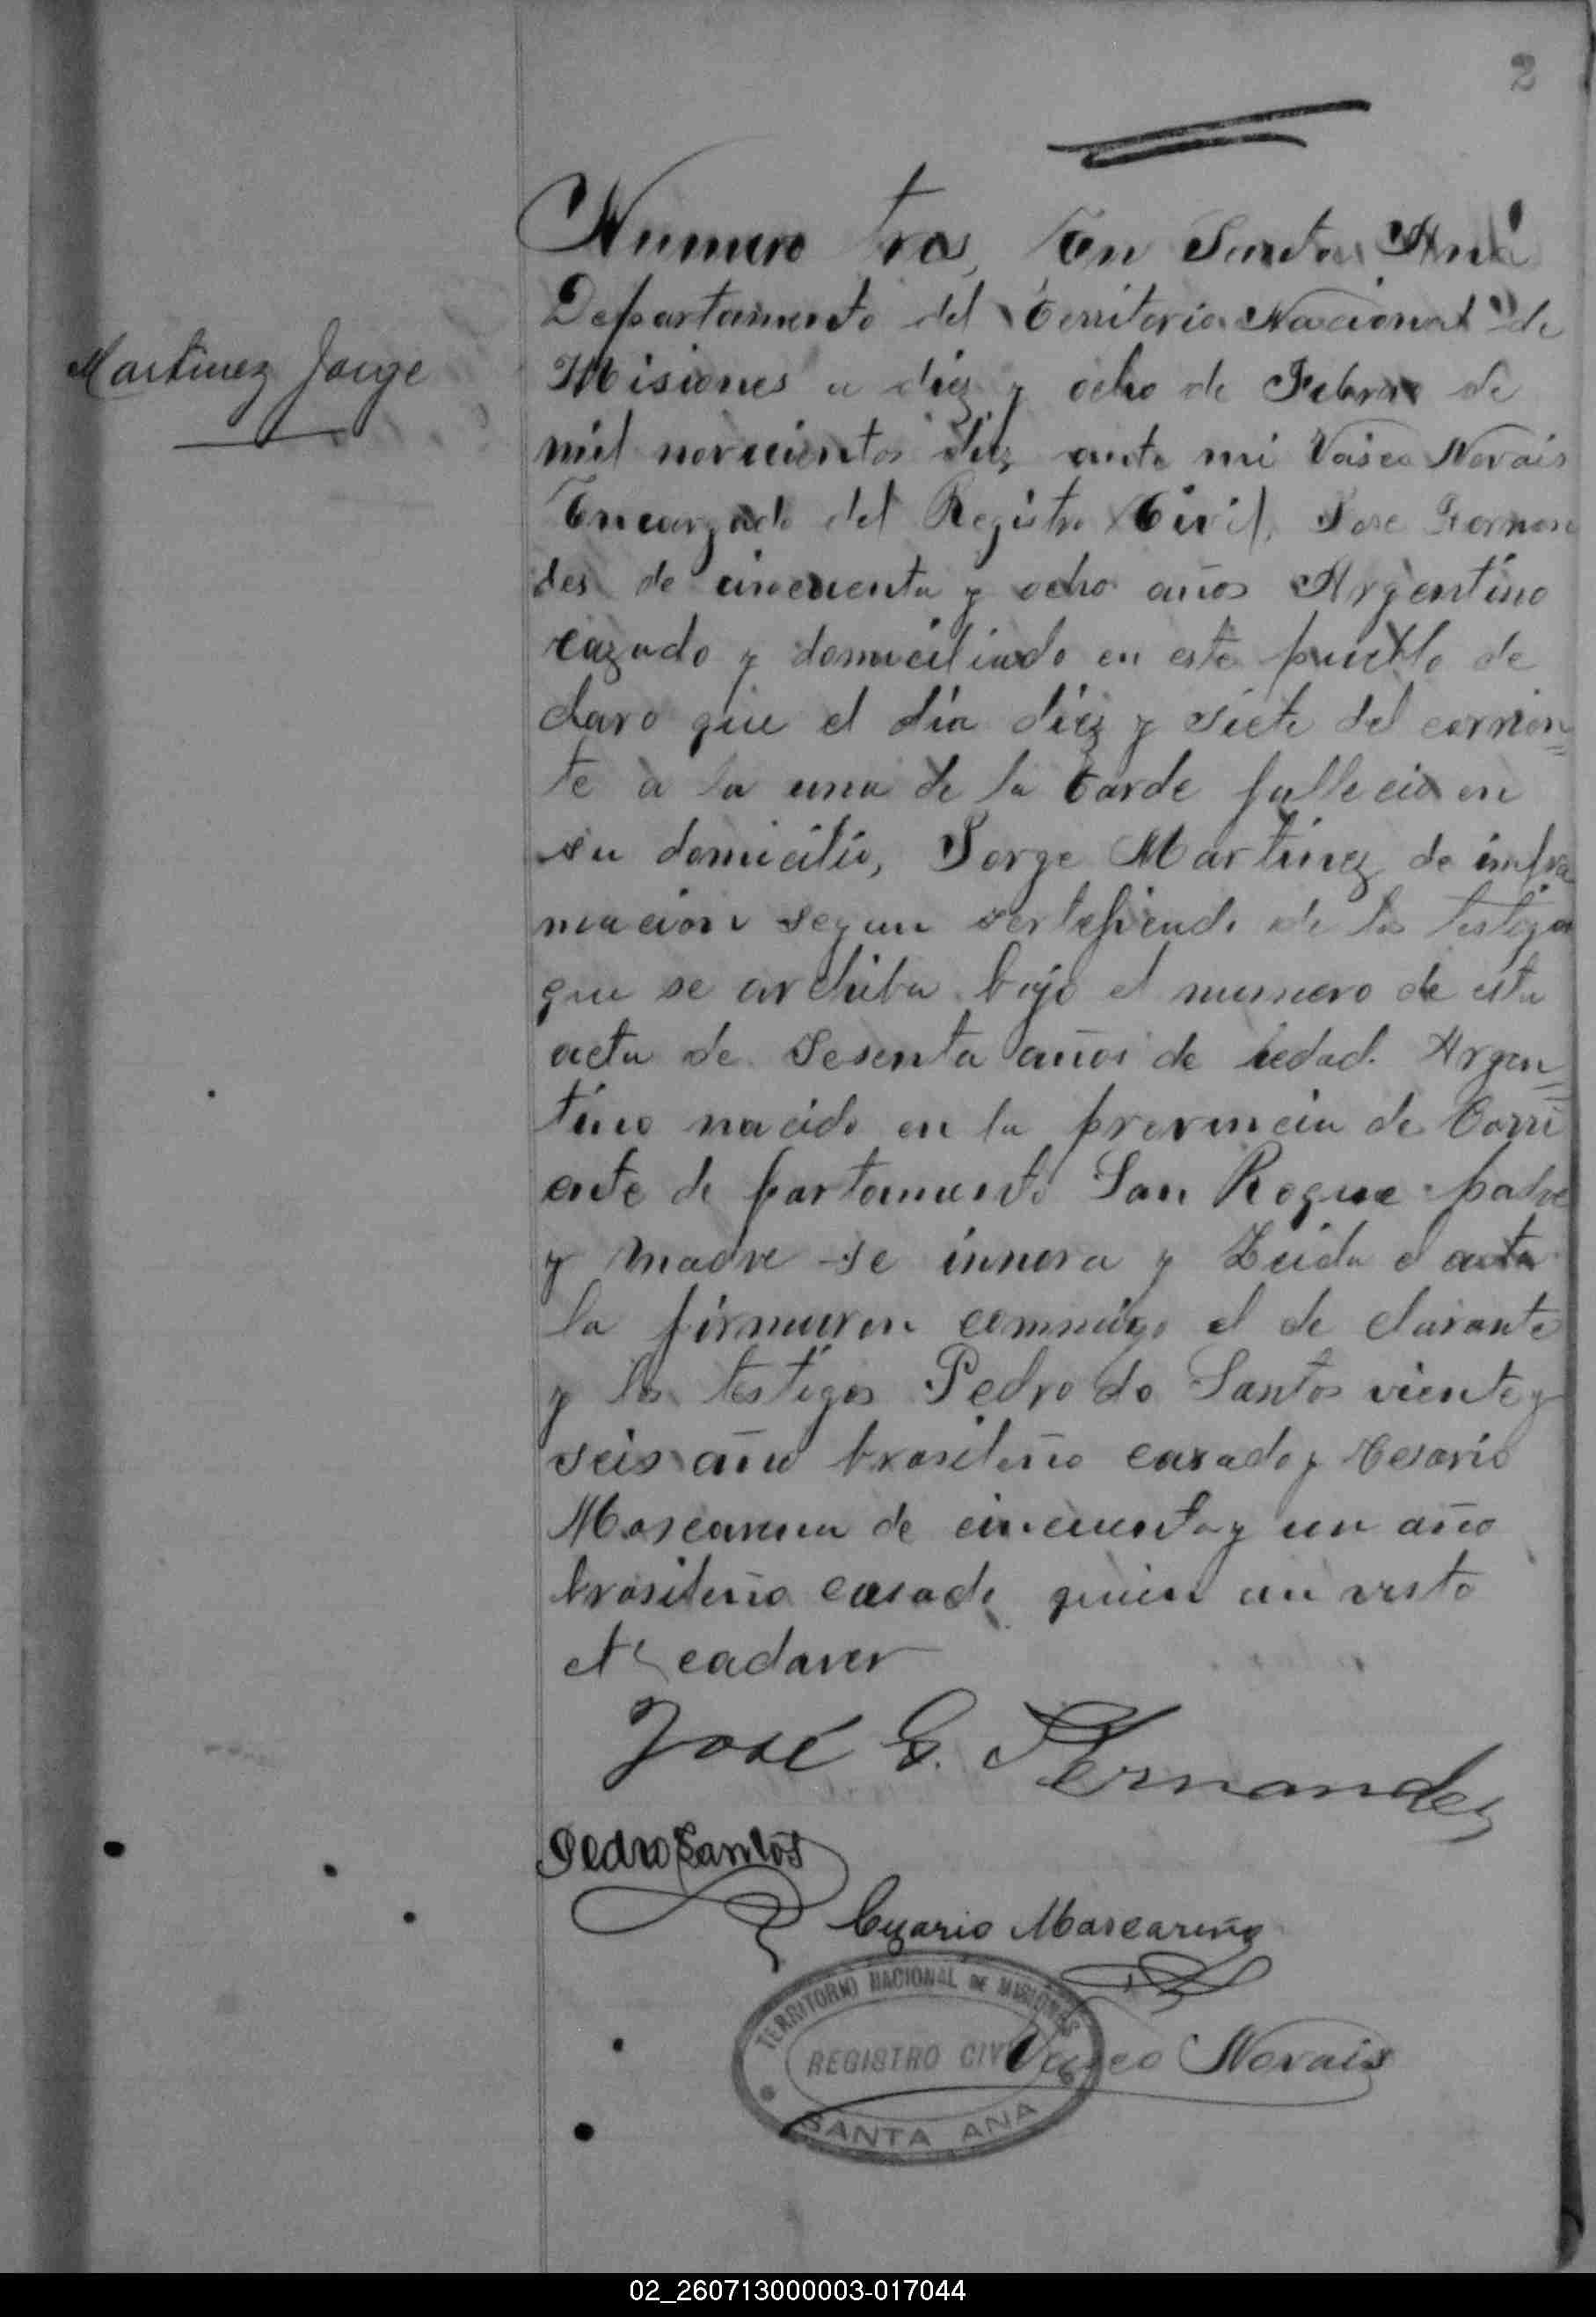 2
Numero tres, En Santa Ana
Departamento del Territorio Nacional de
Martinez Jorge
Misiones a diez y ocho de Febrero de
mil novecientos diez ante mi Vasco Novais
Encargado del Registro Civil, Jose Fernan
des de cincuenta y ocho años Argentino
cazado y domiciliado en este pueblo de
claro que el día diez y siete del corrien=
te a la una de la tarde fallecio en
su domicilio, Jorge Martinez de imfra
macion segun sertefiendo de los testigos
que se archiba bajo el numero de esta
acta de Sesenta años de hedad. Argen=
tino nacido en la provincia de Corri
ente de partamento San Roque padre
y madre se innora y Leida el acta
la firmaron conmigo el de clarante
y los testigos Pedro do Santos viente y
seis año brasileño casado y Cesario
Mascarena de cincuenta y un año
brasileño casado quien an visto
el cadaver
José G. Fernandez
Pedro Santos
Cezario Mascareña
TERRITORIO NACIONAL DE MISIONES
REGISTRO CIVIL
Vasco Novais
SANTA ANA
02_260713000003-017044